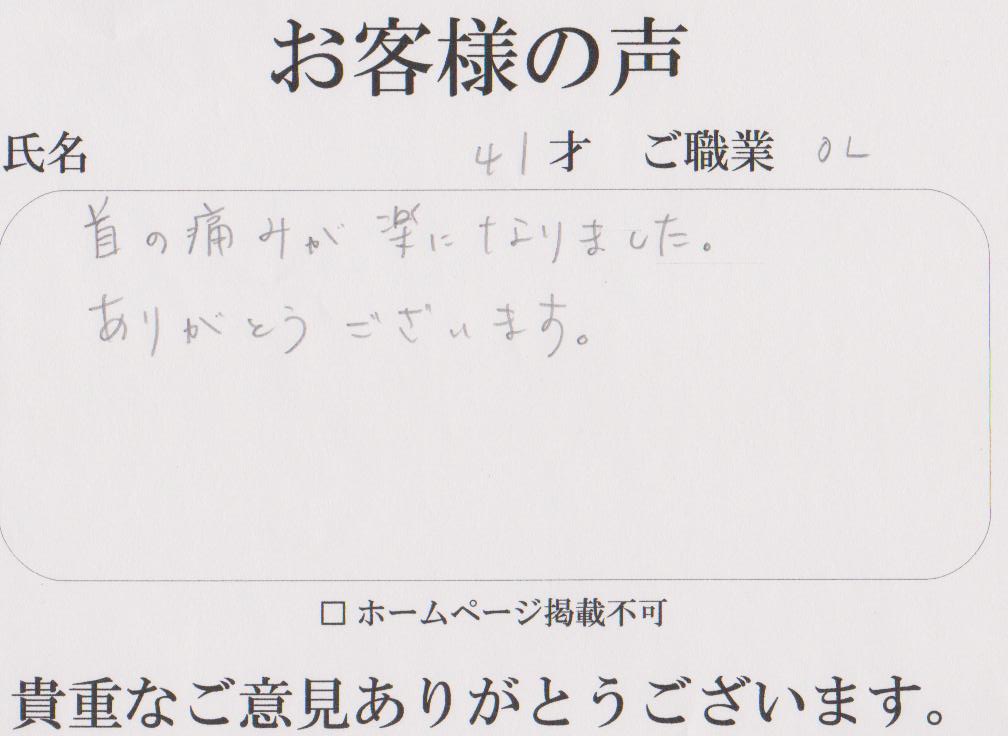 お客様の声
氏名 41才 ご職業 OL
首の痛みが楽になりました。
ありがとうございます。
□ ホームページ掲載不可
貴重なご意見ありがとうございます。